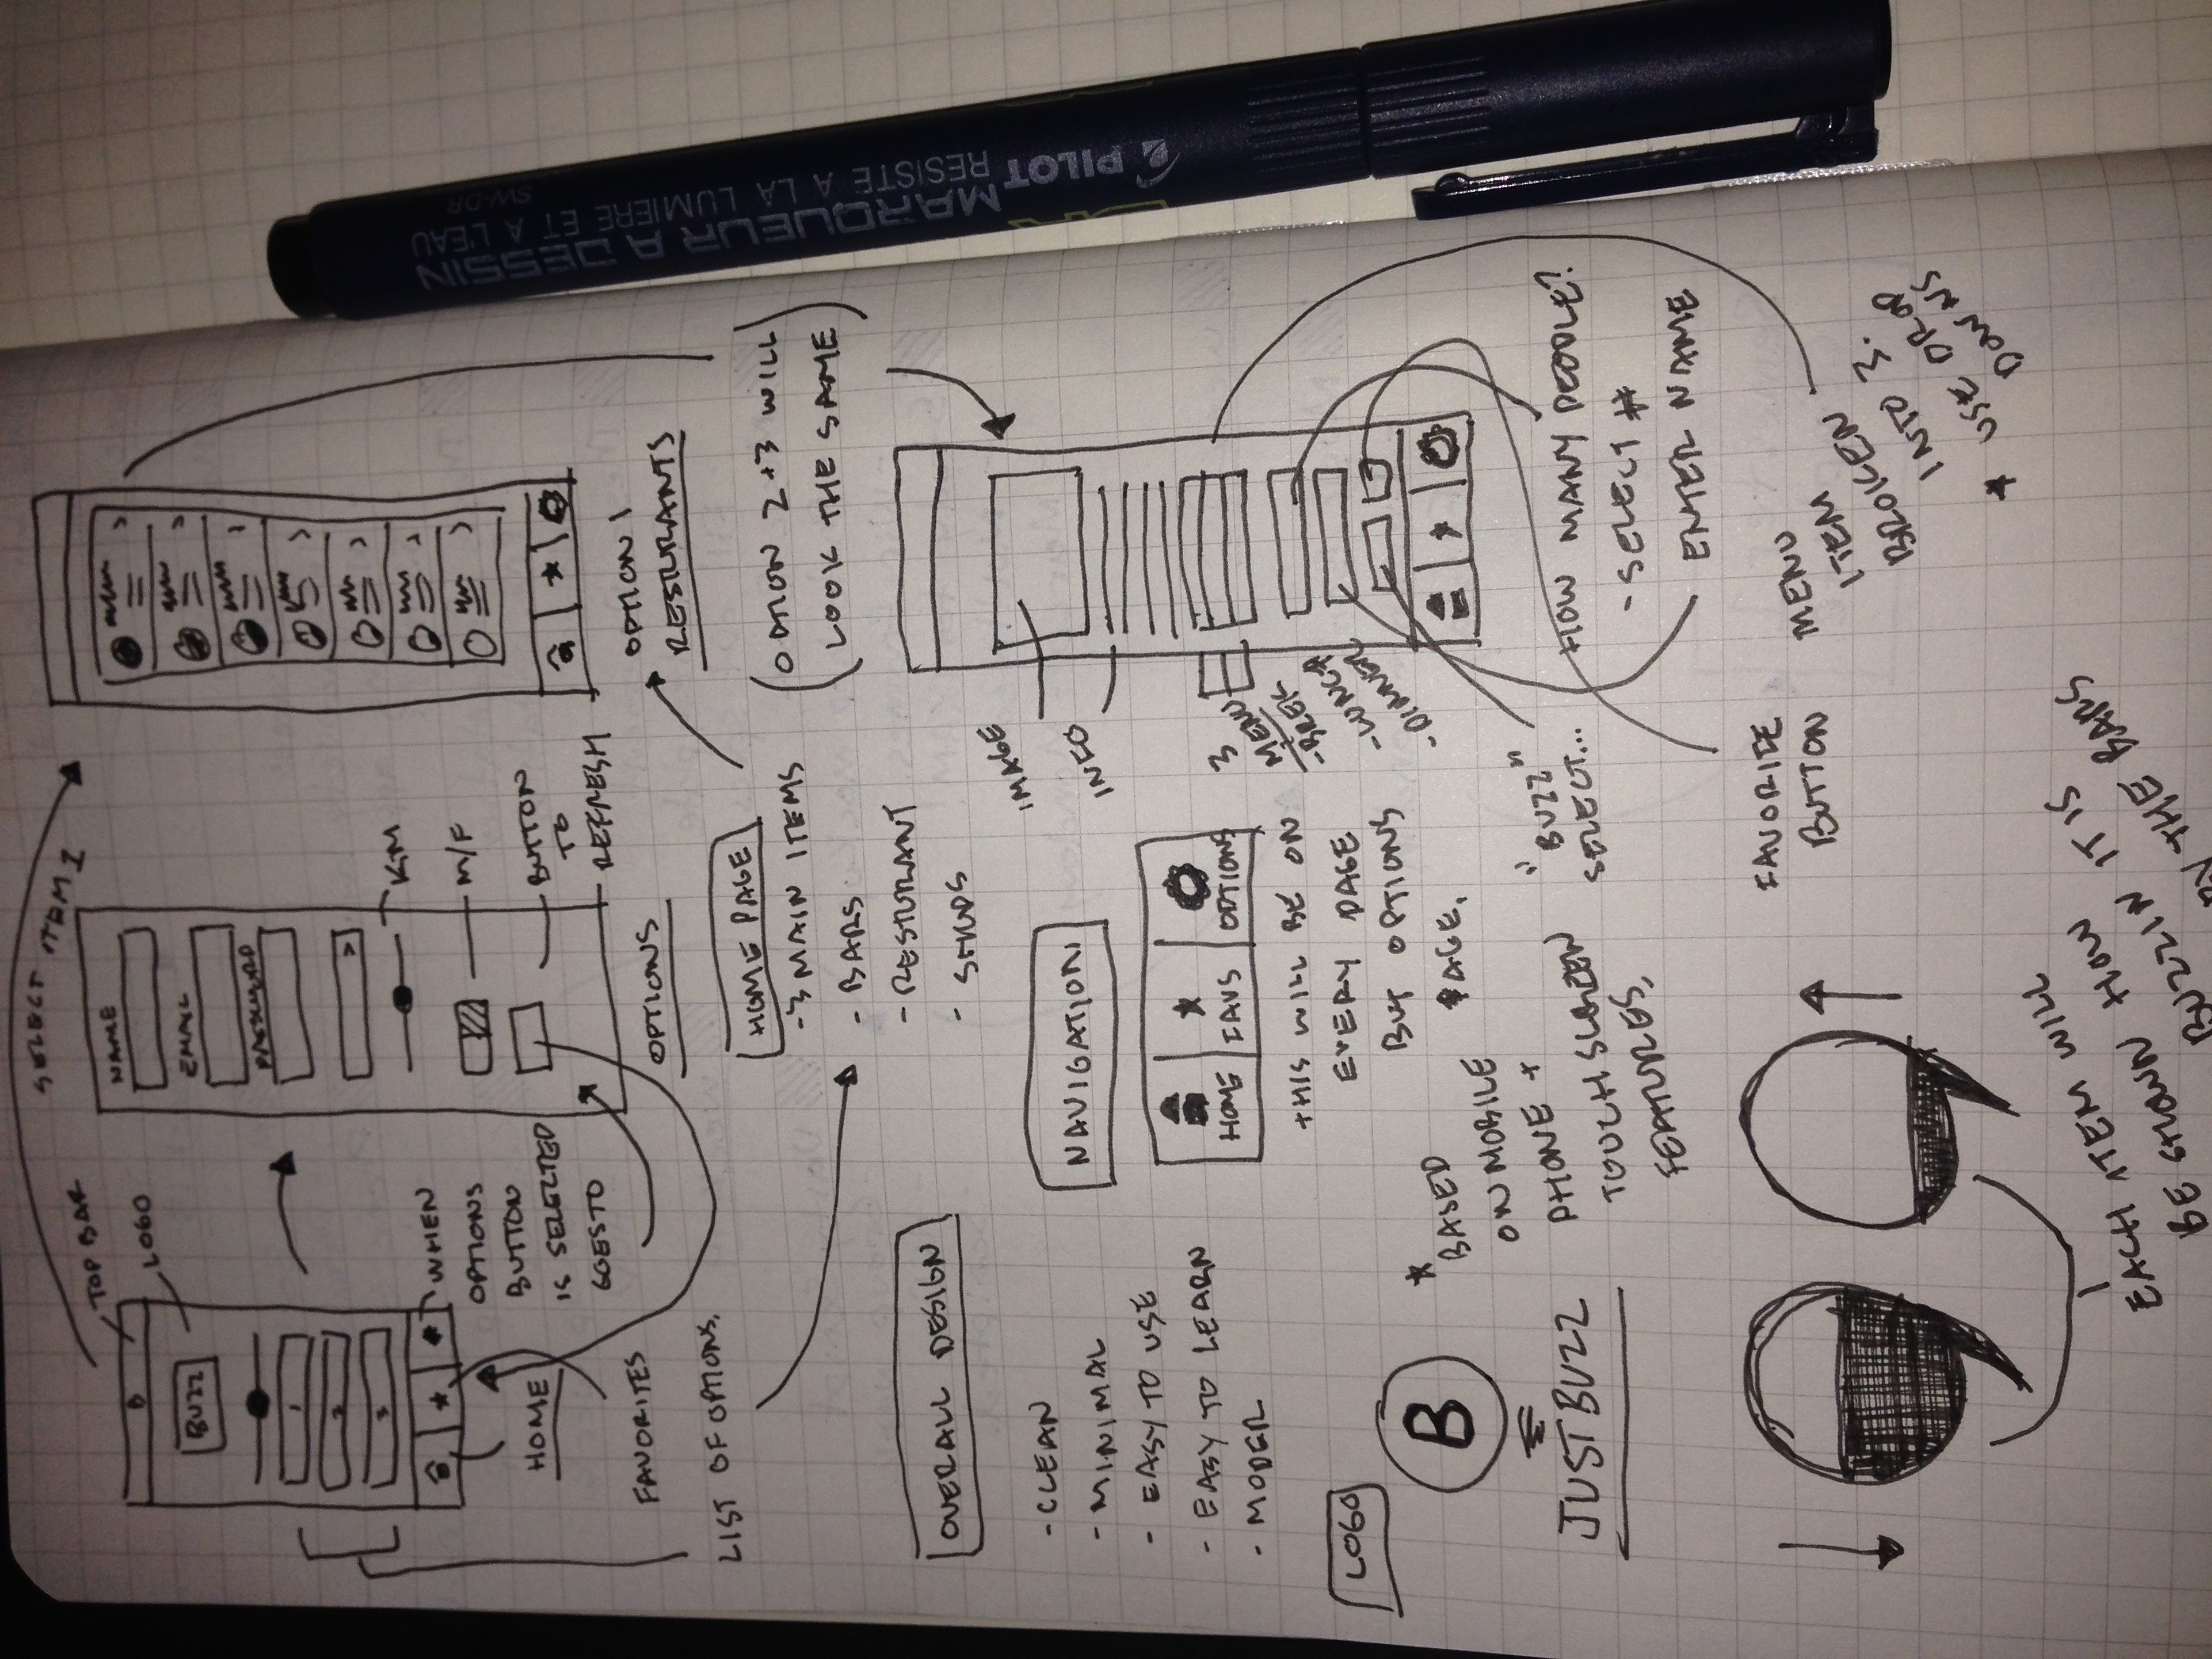 SELECT ITEM 1
TOP BAR
B
LOGO
BUZZ
1
2
3
WHEN
OPTIONS
BUTTON
IS SELECTED
GOES TO
HOME
FAVORITES
LIST OF OPTIONS.
NAME
EMAIL
PASSWORD
>
KM
M/F
BUTTON
TO
REFRESH
OPTIONS
OPTION 1
RESTURANTS
(OPTION 2+3 WILL
LOOK THE SAME)
HOME PAGE
-3 MAIN ITEMS
- BARS
- RESTURANT
-
OVERALL DESIGN
- CLEAN
- MINIMAL
- EASY TO USE
- EASY TO LEARN
- MODER
NAVIGATION
HOME FAVS OPTIONS
THIS WILL BE ON
EVERY PAGE
BUT OPTIONS
PAGE.
IMAGE
INFO
3
MENU
- BREK
- LUNCH
- DINNER
LOGO
B
JUSTBUZZ
* BASED
ON MOBILE
PHONE +
TOUCH SCREEN
FEATURES.
"BUZZ"
SELECT...
HOW MANY PEOPLE?
- SELECT #
ENTER NAME
FAVORITE
BUTTON
MENU
ITEM
BROKEN
INTO 3.
* USE DROP
DOWNS
EACH ITEM WILL
BE SHOWN HOW
BUZZIN IT IS
BY THE BARS
PILOT MARQUEUR A DESSIN
RESISTE A LA LUMIERE ET A L'EAU
SW-DR